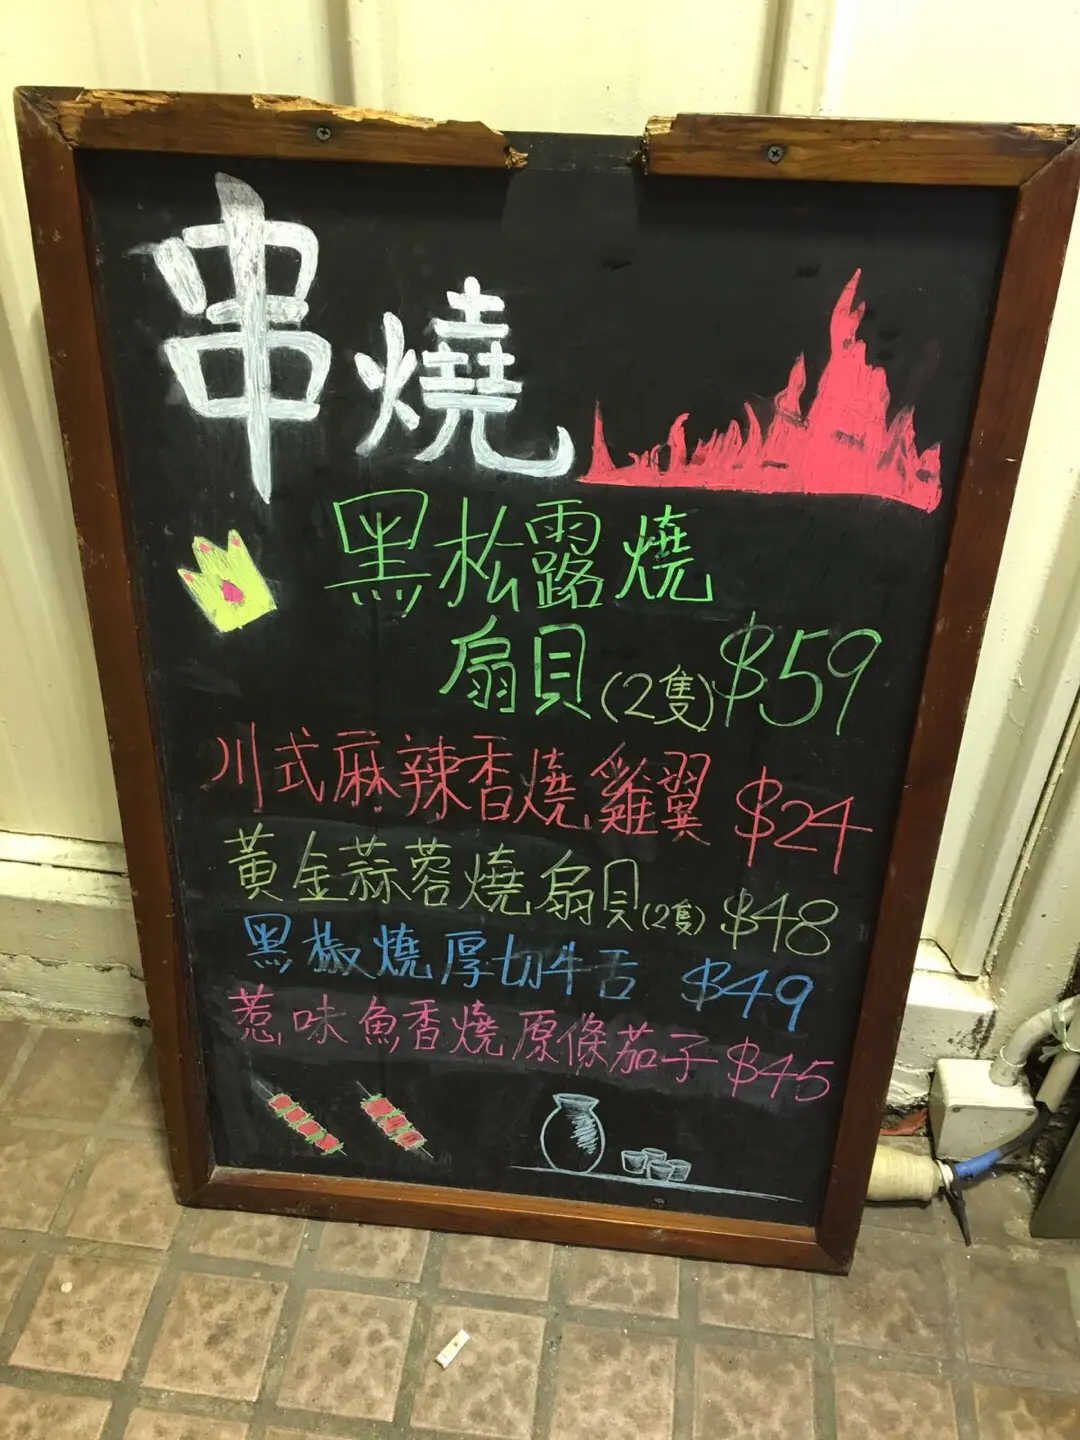 串燒
黑松露燒
扇貝(2隻)$59
川式麻辣香燒雞翼 $24
黃金蒜蓉燒扇貝(2隻) $48
黑椒燒厚切牛舌 $49
惹味魚香燒原條茄子 $45